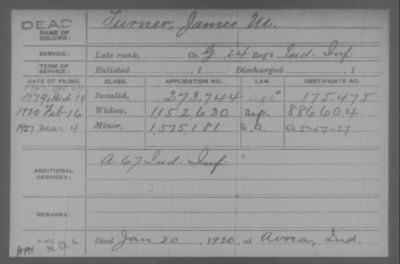 DEAD
NAME OF SOLDIER: Turner, James M.
SERVICE: Late rank, Co. G, 24 Reg't Ind. Inf
TERM OF SERVICE: Enlisted , 1 Discharged , 1
DATE OF FILING. CLASS. APPLICATION NO. LAW. CERTIFICATE NO.
1879 Mch 19 Invalid, 273.744 175.475
1920 Feb-16 Widow, 1152.630 886604
1921 Mar 4 Minor, 1,575,181 G.A. A 5-47-27
ADDITIONAL SERVICES: A 67 Ind Inf
REMARKS:
Died Jan 20, 1920, at Avoca, Ind.